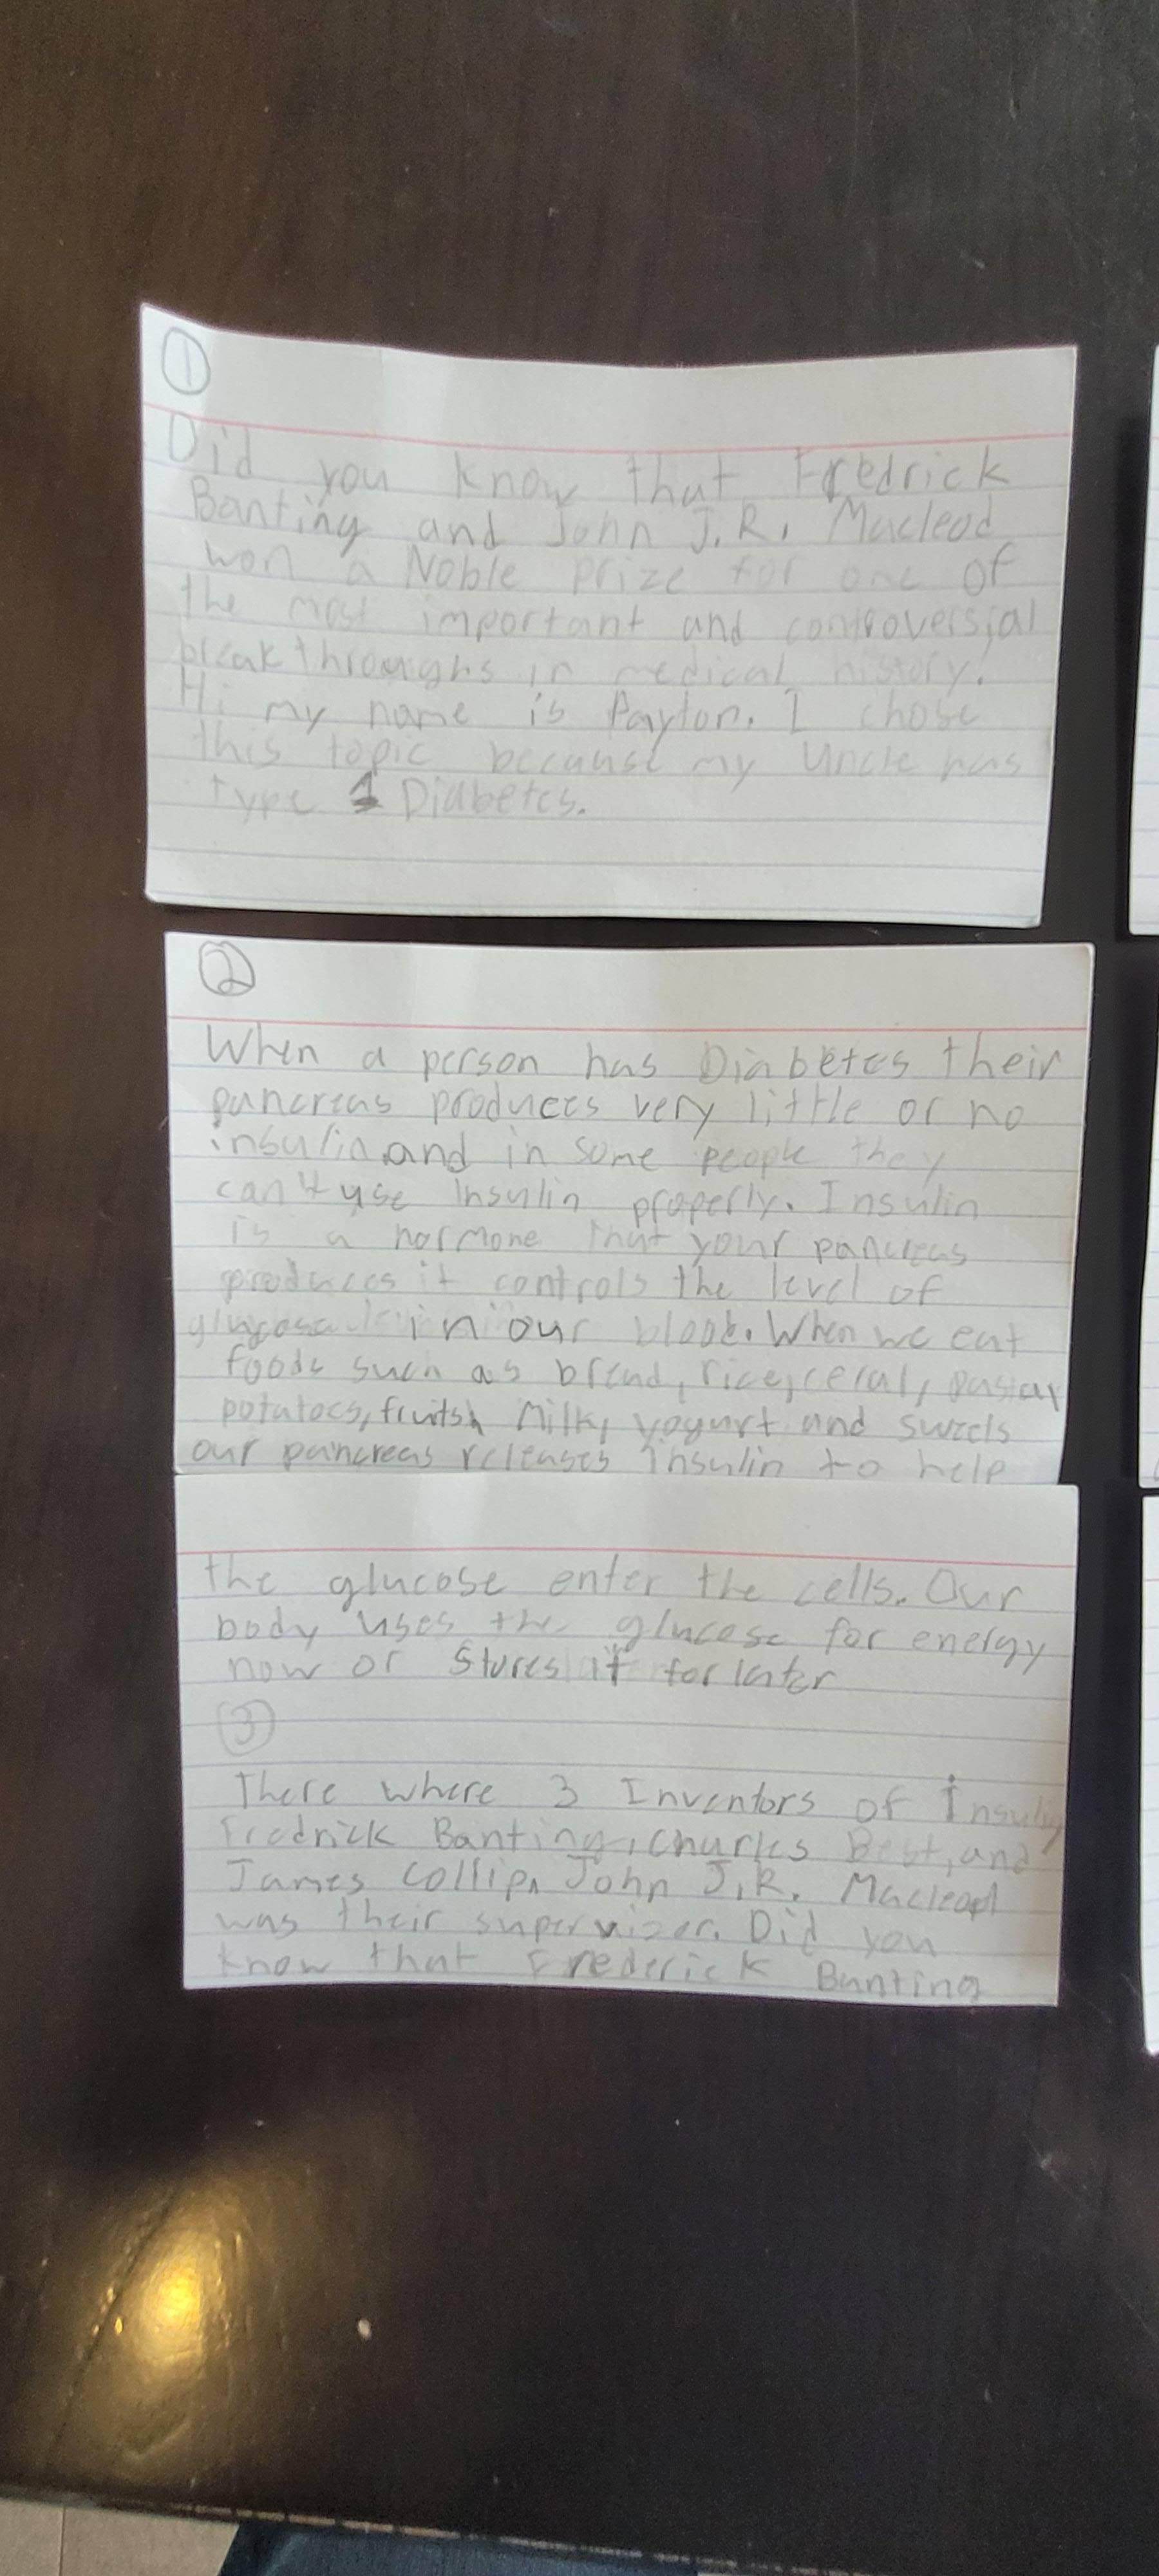 ①
Did you know that Fredrick
Banting and John J.R. Macleod
won a Noble prize for one of
the most important and controversial
breakthroughs in medical history.
Hi my name is Payton. I chose
this topic because my Uncle has
type 1 Diabetes.
②
When a person has Diabetes their
pancreas produces very little or no
insulin and in some people they
can't use Insulin properly. Insulin
is a hormone that your pancreas
produces it controls the level of
in our blood. When we eat
foods such as bread, rice, ceral, pasta,
potatoes, fruits, Milk, yogurt and sweets
our pancreas releases insulin to help
the glucose enter the cells. Our
body uses the glucose for energy
now or stores it for later
③
There where 3 Inventors of insulin
Fredrick Banting, Charles Best, and
James Collip. John J.R. Macleod
was their supervizer. Did you
know that Frederick Banting